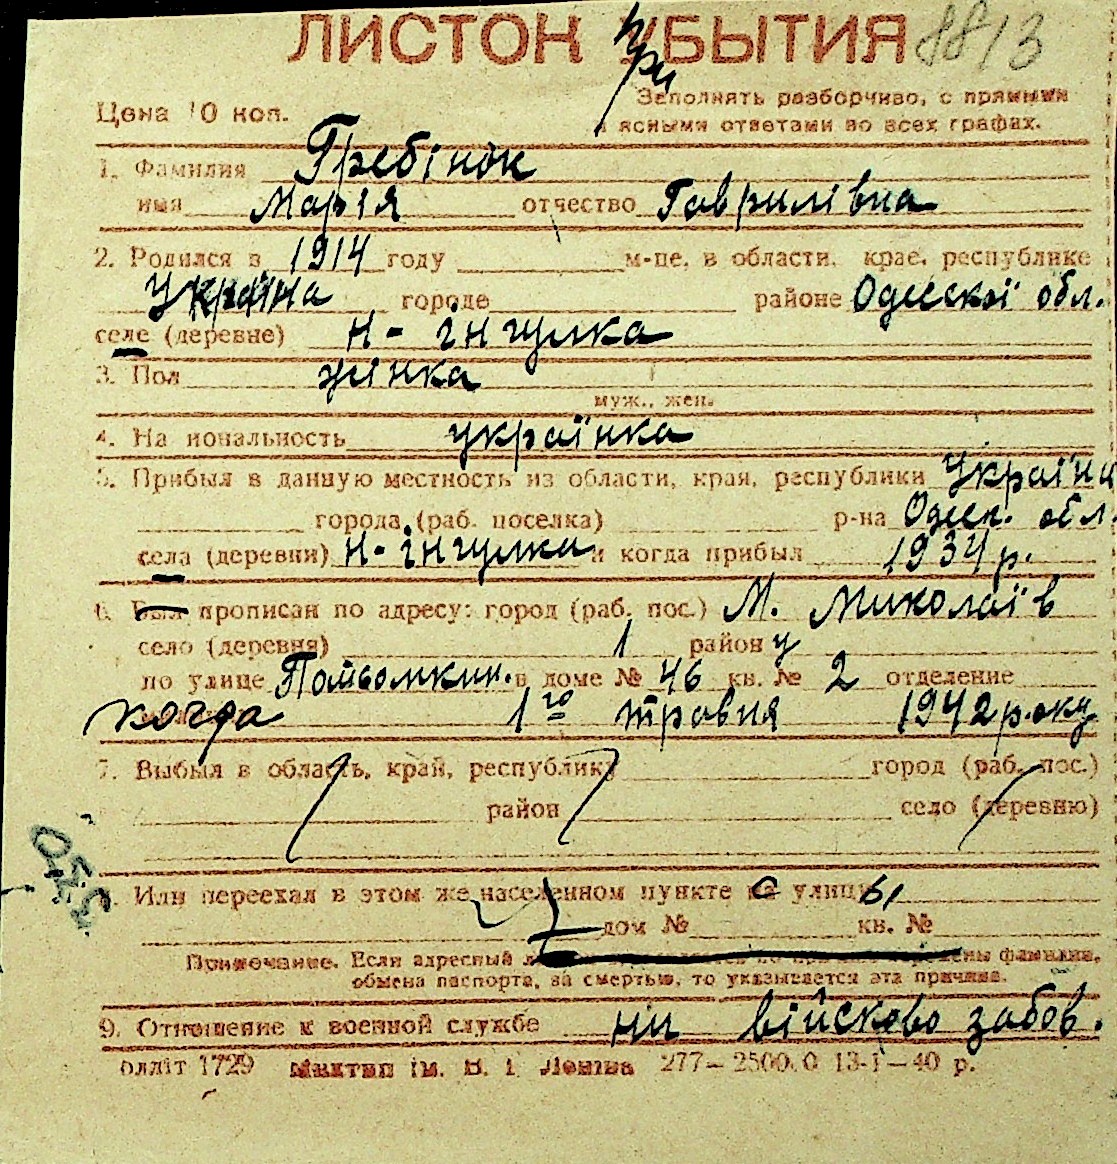 ЛИСТОК УБЫТИЯ 8813
При
Цена 10 коп. Заполнять разборчиво, с прямыми
и ясными ответами во всех графах.
1. Фамилия Гребінок
имя Марія отчество Гаврилівна
2. Родился в 1914 году м-це, в области, крае, республике
Україна городе районе Одеської обл.
селе (деревне) Н-Інгулка
3. Пол жінка
муж., жен.
4. На иональность українка
5. Прибыл в данную местность из области, края, республики Україна
города (раб. поселка) р-на Одеск. обл.
села (деревни) Н-Інгулки и когда прибыл 1934 р.
6. Был прописан по адресу: город (раб. пос.) М. Миколаїв
село (деревня) 1 район у
по улице Потьомкин. в доме № 46 кв. № 2 отделение
когда 1го травня 1942 року
7. Выбыл в область, край, республику город (раб. пос.)
район село (деревню)
8. Или переехал в этом же населенном пункте с улицы
дом № кв. №
Примечание. Если адресный фамилии,
обмена паспорта, за смертью, то указывается эта причина.
9. Отношение к военной службе ни військово забов.
олліт 1729 Миктип ім. В. І. Леніна 277—2500.0 13-I—40 р.